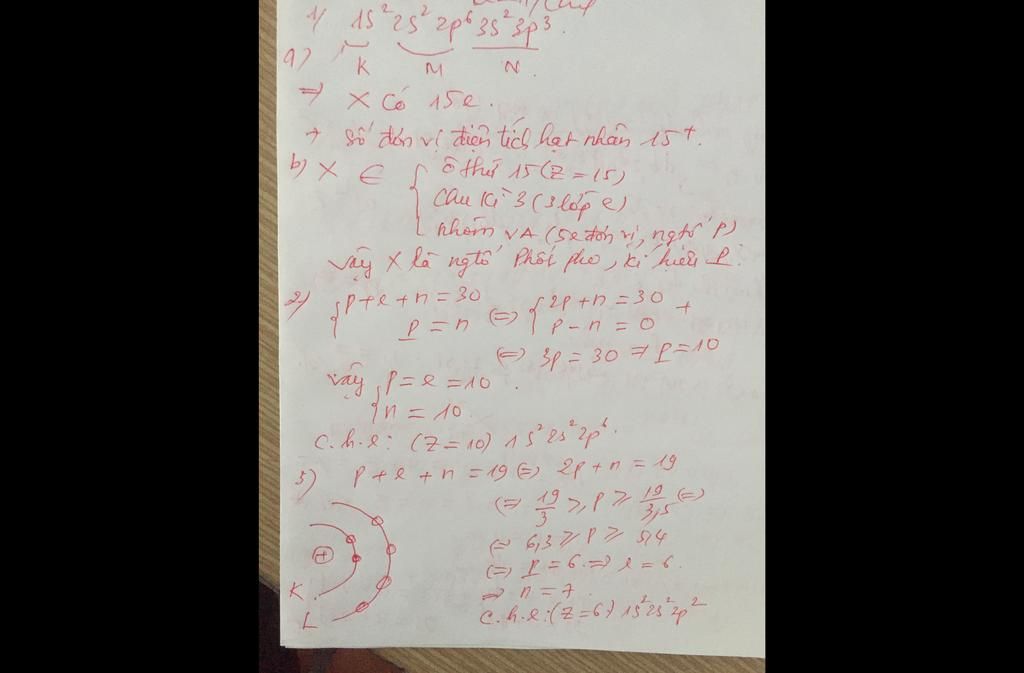 1/ 1s² 2s² 2p⁶ 3s² 3p³.
a) K M N.
=> X có 15e.
+ Số đơn vị điện tích hạt nhân 15⁺.
b) X ∈ { ô thứ 15 (Z = 15)
Chu kì 3 (3 lớp e)
nhóm VA (5e
vậy X là ngtố Phốt pho, kí hiệu P.
2) { p + e + n = 30 (=) { 2p + n = 30 +
p = n p - n = 0
(=) 3p = 30 => p = 10
vậy { p = e = 10.
n = 10.
C.h.e: (Z = 10) 1s² 2s² 2p⁶.
3) p + e + n = 19 (=) 2p + n = 19
(=> 19/3 ≥ p ≥ 19/3,5 (=)
(= 6,3 ≥ p ≥ 5,4
(=) p = 6 => e = 6.
=> n = 7.
C.h.e: (Z = 6) 1s² 2s² 2p²
+
K
L